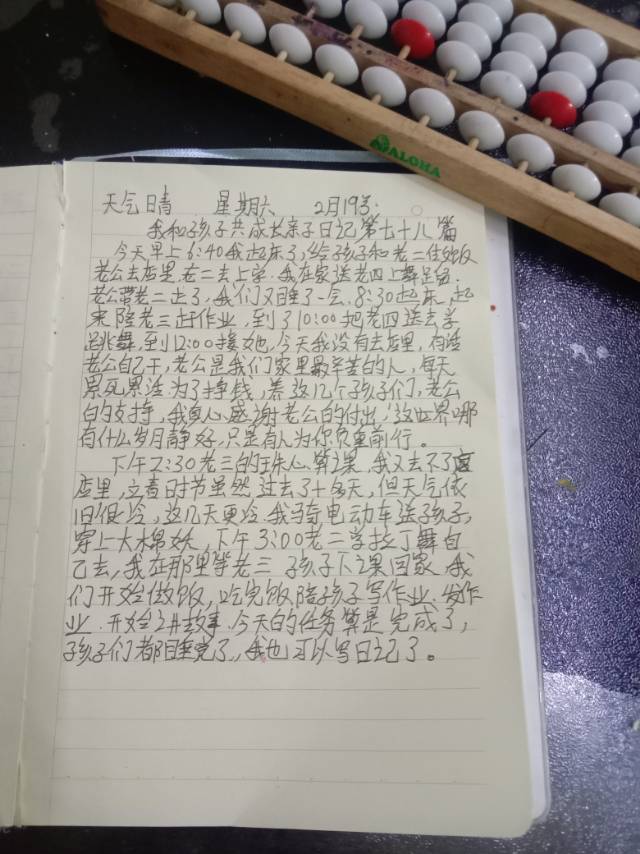 ALOHA
天气晴 星期六 2月19号
我和孩子共成长亲子日记第七十八篇
今天早上6:40我起床了,给孩子和老二做饭
老公去店里.老二去上学.我在家送老四上舞蹈.
老公带老二走了,我们又睡了一会.8:30起床,起
来陪老三赶作业,到了10:00把老四送去学
跳舞.到12:00接她,今天我没有去店里,有活
老公自己干,老公是我们家里最辛苦的人,每天
累死累活为了挣钱,养这几个孩子们,老公
的支持,我真心感谢老公的付出,这世界哪
有什么岁月静好,只是有人为你负重前行。
下午2:30老三的珠心算课,我又去不了
店里,立春时节虽然过去了十多天,但天气依
旧很冷,这几天更冷.我骑电动车送孩子,
穿上大棉袄,下午3:00老二学拉丁舞自
己去,我在那里等老三孩子下课回家.我
们开始做饭,吃完饭陪孩子写作业.发作
业.开始讲故事.今天的任务算是完成了,
孩子们都睡觉了,我也可以写日记了。